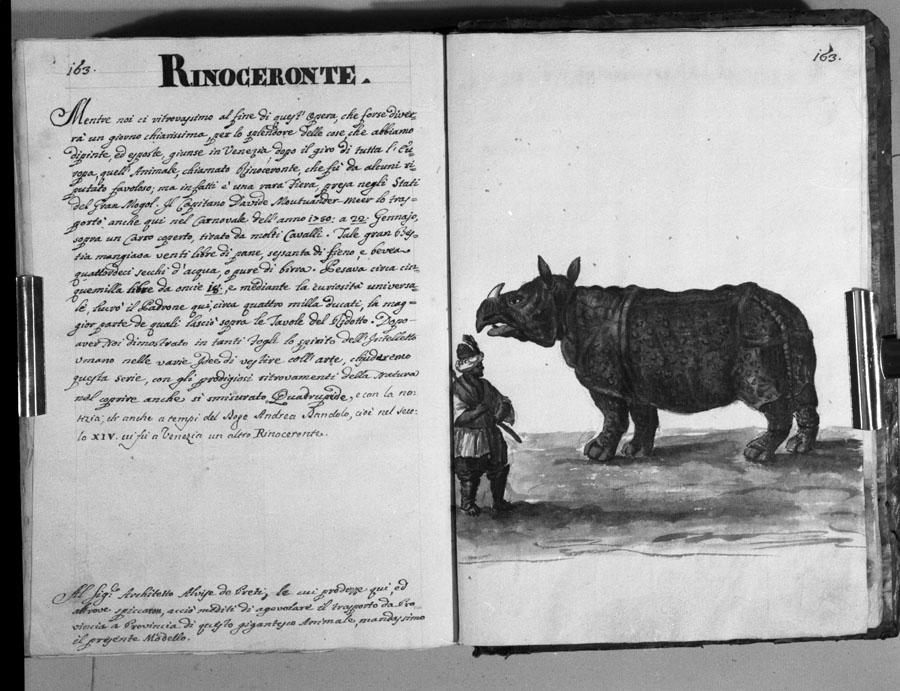 163.
RINOCERONTE.
Mentre noi ci ritrovassimo al fine di quest' Opera, che forse diver-
rà un giorno chiarissima, per lo splendore delle cose che abbiamo
dipinte, ed esposte, giunse in Venezia, dopo il giro di tutta l' Eu-
ropa, quell' Animale, chiamato Rinoceronte, che fù da alcuni ri-
putato favoloso; ma in fatti è una rara Fiera, presa negli Stati
del Gran Mogol. Il Capitano Davide Moutvander-meer lo tras-
portò anche qui nel Carnovale dell' anno 1750: a 22: Gennajo,
sopra un Carro coperto, tirato da molti Cavalli. Tale gran bes-
tia mangiava venti libre di pane, sessanta di fieno, e bevea
quattordeci secchi d' acqua, o pure di birra. Pesava circa cin-
quemilla libre da oncie 18: e mediante la curiosità universa-
le, ricavò il Padrone qui, circa quattro milla ducati, la mag-
gior parte de quali lasciò sopra le Tavole del Ridotto. Dopo
aver Noi dimostrato in tanti fogli lo spirito dell' Intelletto
umano nelle varie Idee di vestire coll' arte, chiuderemo
questa serie, con gli prodigiosi ritrovamenti della Natura
nel coprire anche si smisurato Quadrupide, e con la no-
tizia, ch' anche a tempi del Doge Andrea Dandolo, cioè nel Seco-
lo XIV. vi fù a Venezia un altro Rinoceronte.
Al Sig.r Architetto Alvise de Preti, le cui prodezze qui, ed
altrove spiccaron, acciò mediti di agevolare il trasporto da Pro-
vincia a Provincia di questo gigantesco Animale, mandassimo
il presente Modello.
163.